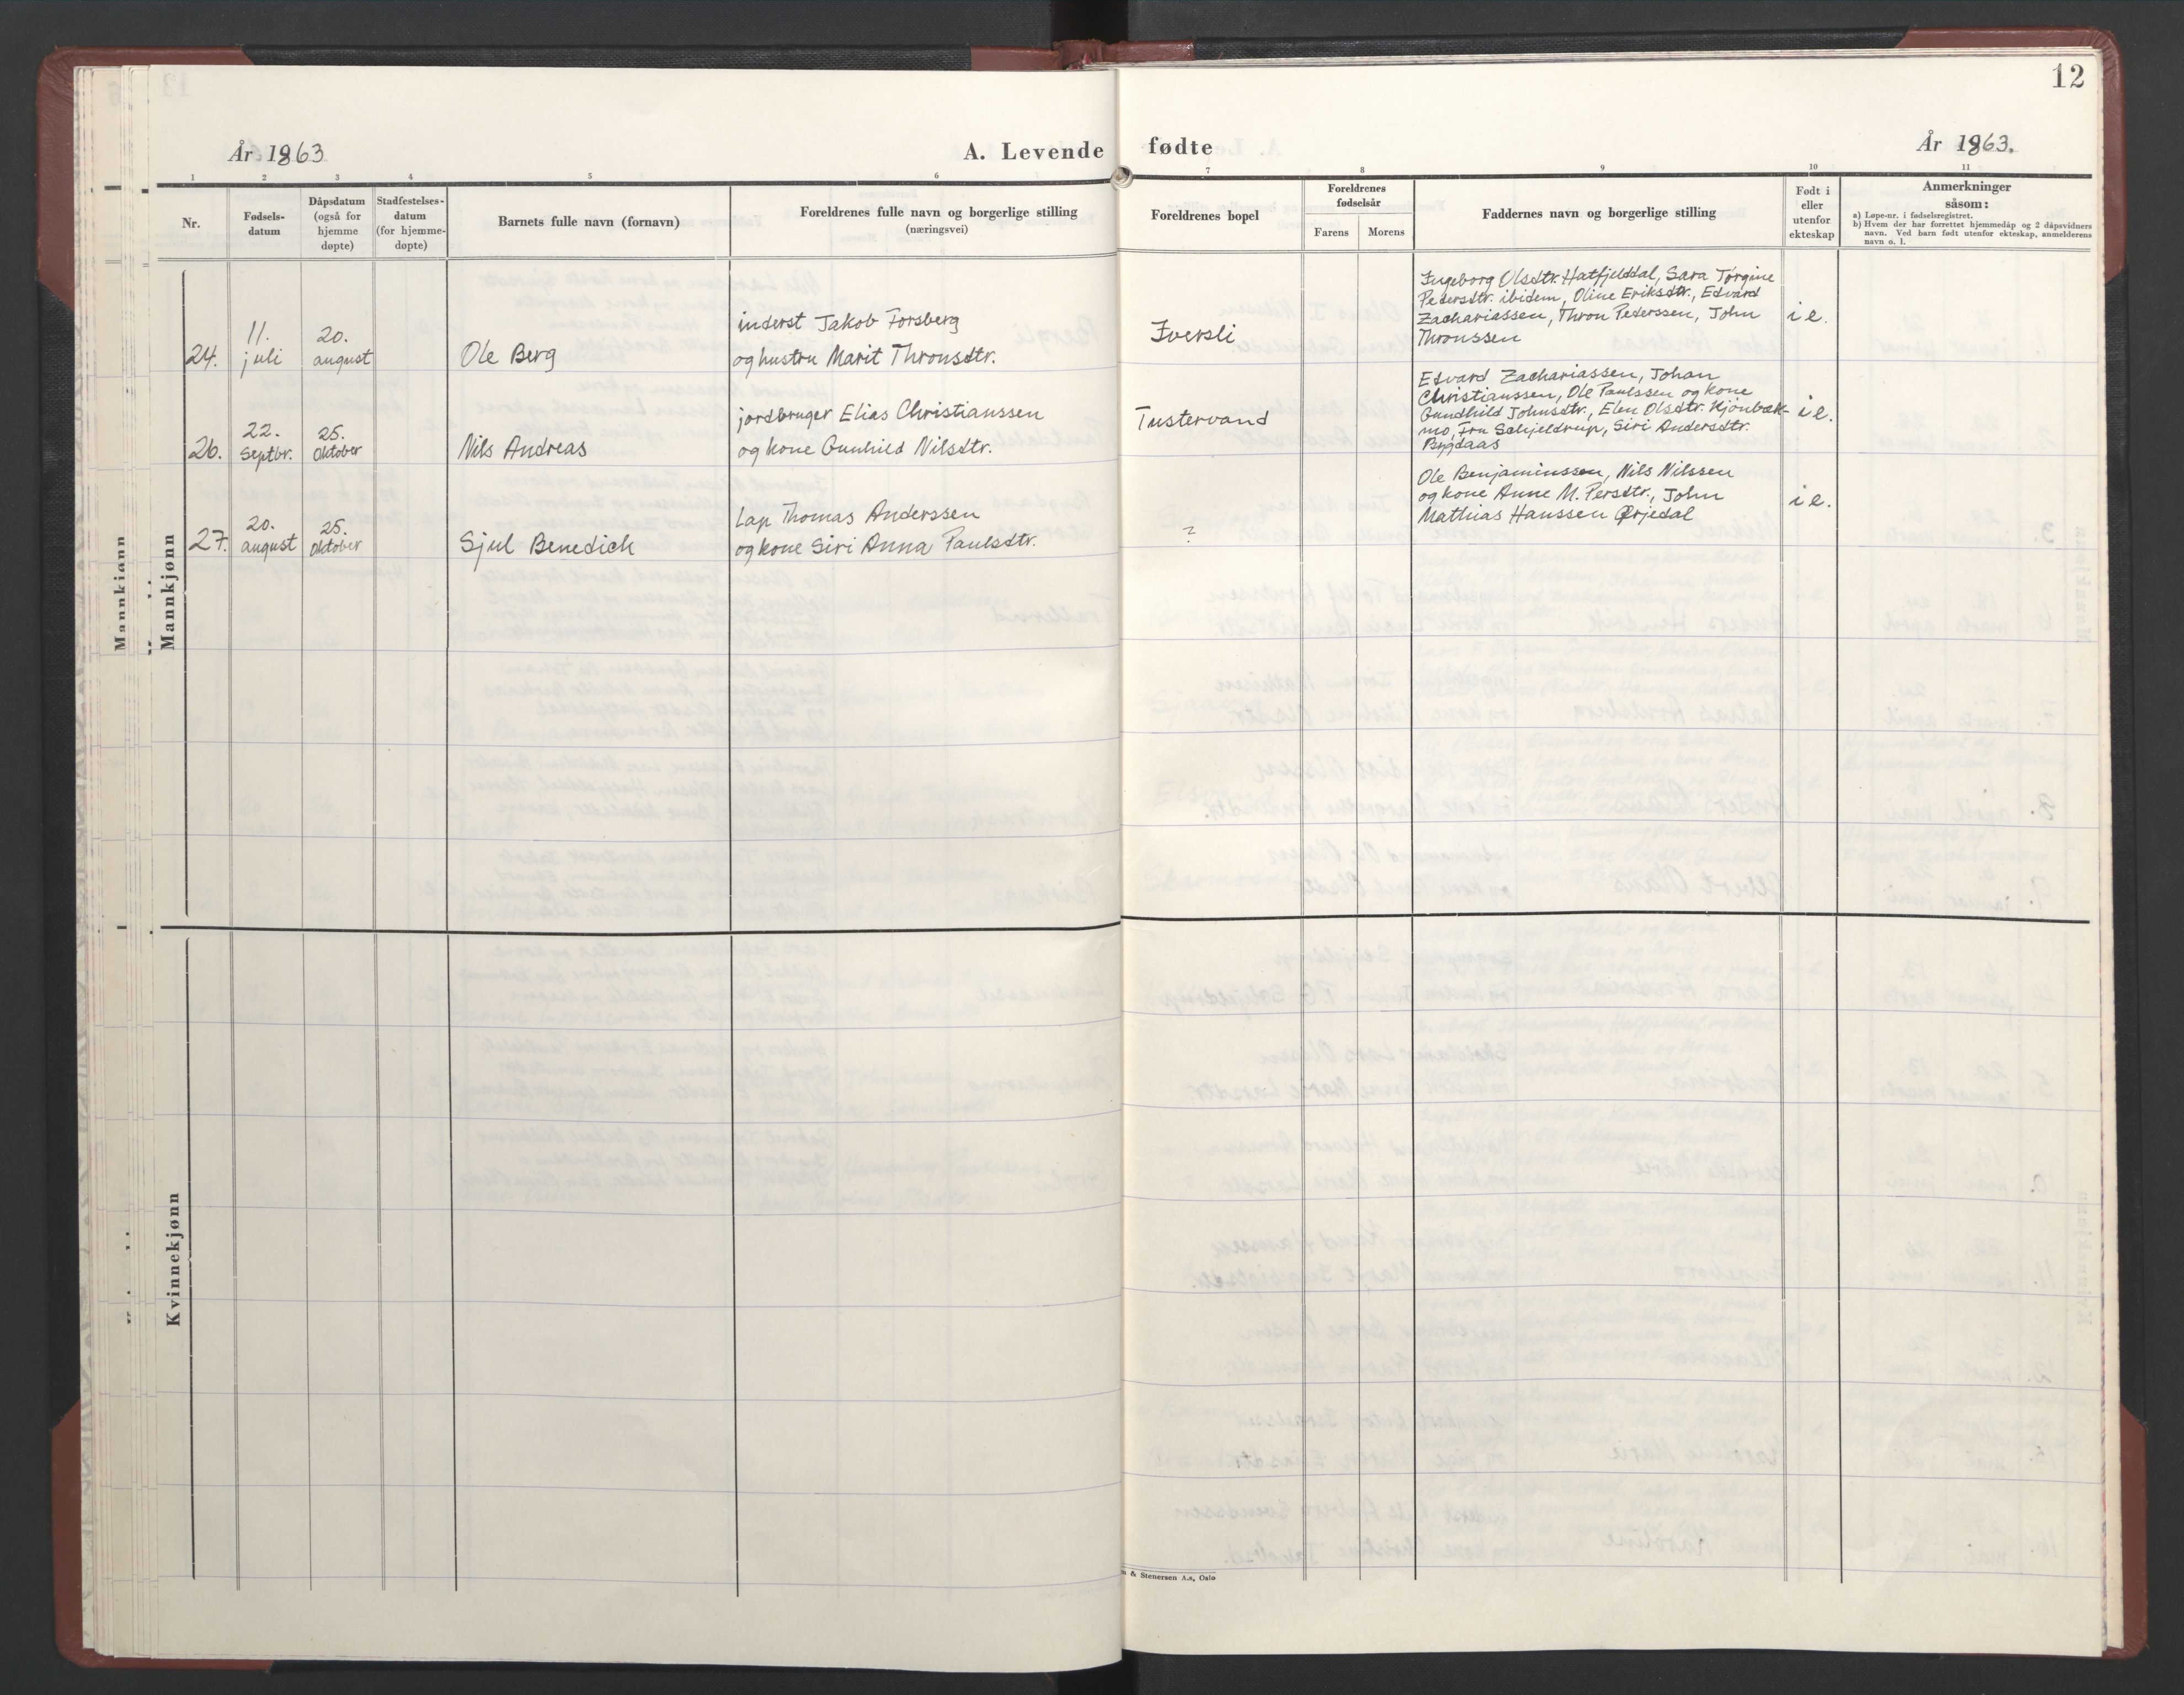 12
År 1863
A. Levende fødte
År 1863.
1 2 3 4 5 6 7 8 9 10 11
Nr.
Fødsels-
datum
Dåpsdatum
(også for
hjemme
døpte)
Stadfestelses-
datum
(for hjemme-
døpte)
Barnets fulle navn (fornavn)
Foreldrenes fulle navn og borgerlige stilling
(næringsvei)
Foreldrenes bopel
Foreldrenes
fødselsår
Farens Morens
Faddernes navn og borgerlige stilling
Født i
eller
utenfor
ekteskap
Anmerkninger
såsom:
a) Løpe-nr. i fødselsregistret.
b) Hvem der har forrettet hjemmedåp og 2 dåpsvidners
navn. Ved barn født utenfor ekteskap, anmelderens
navn o. l.
Mannkjønn
Mannkjønn
24.
11.
juli
20.
august
Ole Berg
inderst Jakob Forsberg
og hustru Marit Thronsdtr.
Iversli
Ingeborg Olsdtr. Hatfjelddal, Sara Jørgine
Pedersdtr. ibidem, Oline Eriksdtr., Edvard
Zachariassen, Thron Pederssen, John
Thronssen
i e.
26.
22.
Septbr.
25.
oktober
Nils Andreas
jordbruger Elias Christianssen
og kone Gunhild Nilsdtr.
Tustervand
Edvard Zachariassen, Johan
Christianssen, Ole Paulssen og kone
Gundhild Johnsdtr., Elen Olsdtr. Kjønbæk-
mo, Fru Schjeldrup, Siri Andersdtr.
Bygdaas
i e.
27.
20.
august
25.
oktober
Sjul Benedich
Lap Thomas Anderssen
og kone Siri Anna Paulsdtr.
?
Ole Benjaminssen, Nils Nilssen
og kone Anne M. Persdtr., John
Mathias Hanssen Ørjedal
i e.
Kvinnekjønn
& Stenersen A.s, Oslo